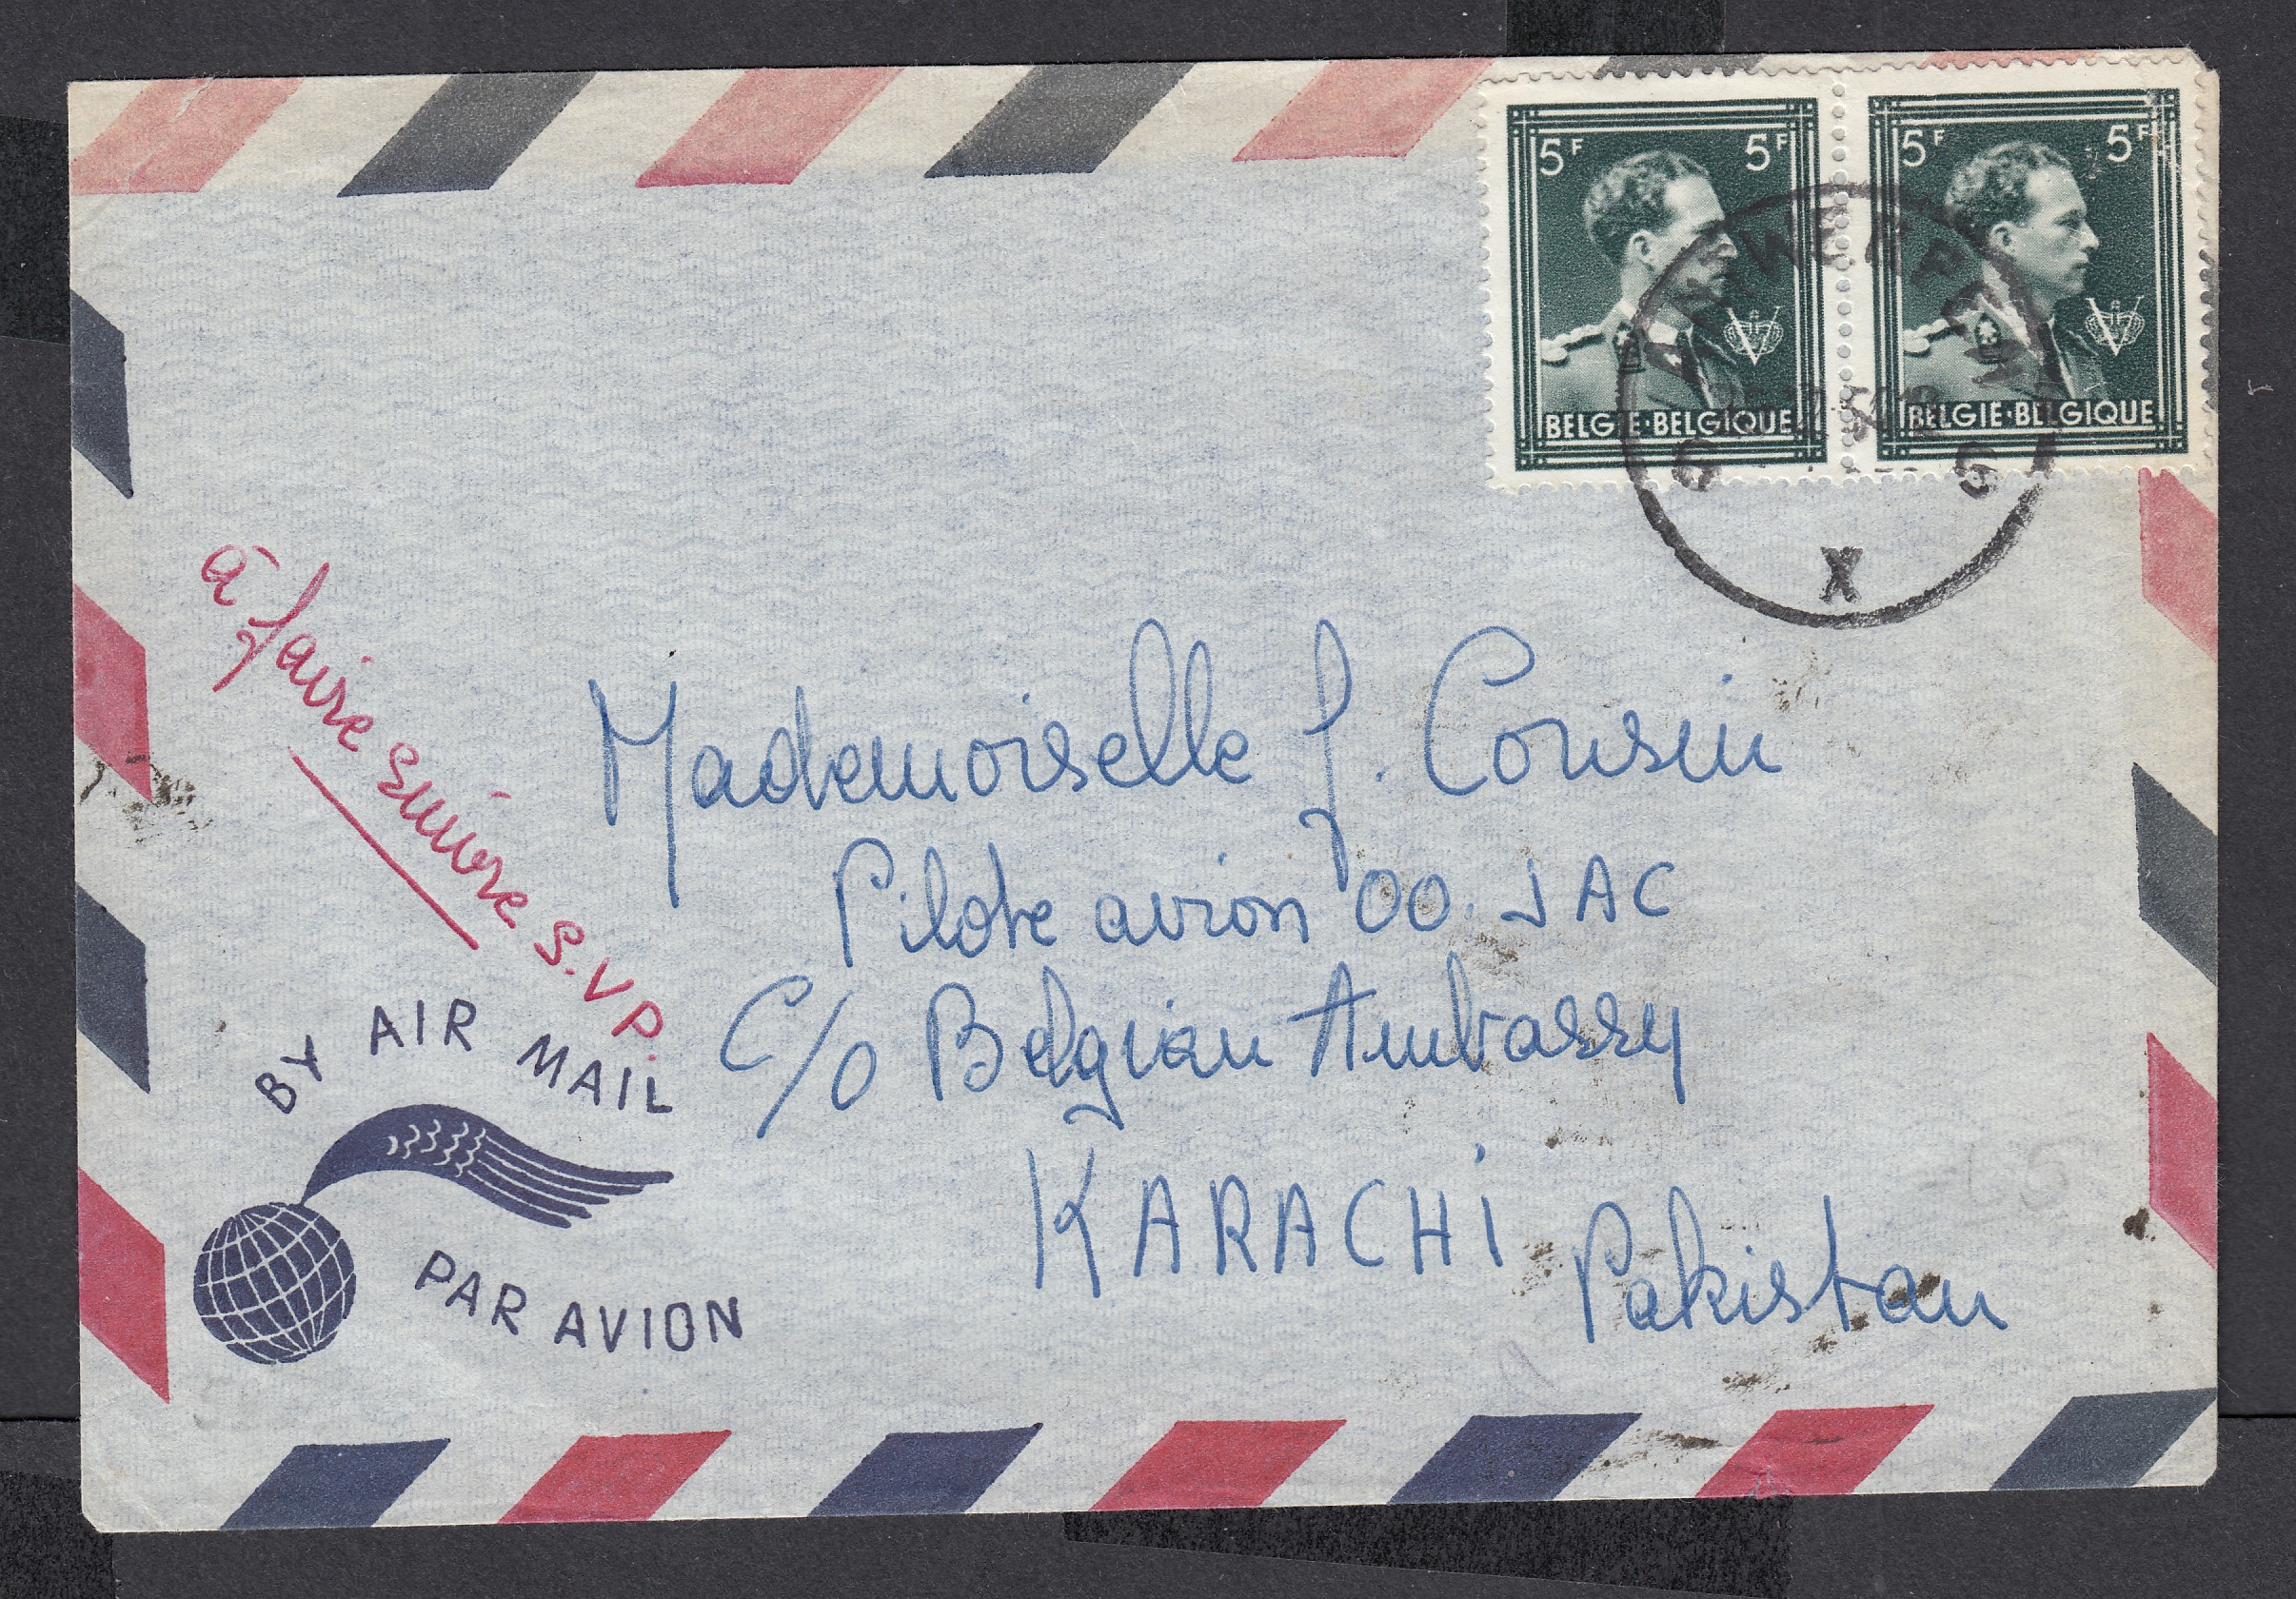 5F 5F
BELGIE·BELGIQUE
5F 5F
BELGIE·BELGIQUE
ANTWERPEN
X
à faire suivre S.V.P.
Mademoiselle J. Cousin
Pilote avion OO. JAC
c/o Belgian Ambassy
KARACHI
Pakistan
BY AIR MAIL
PAR AVION